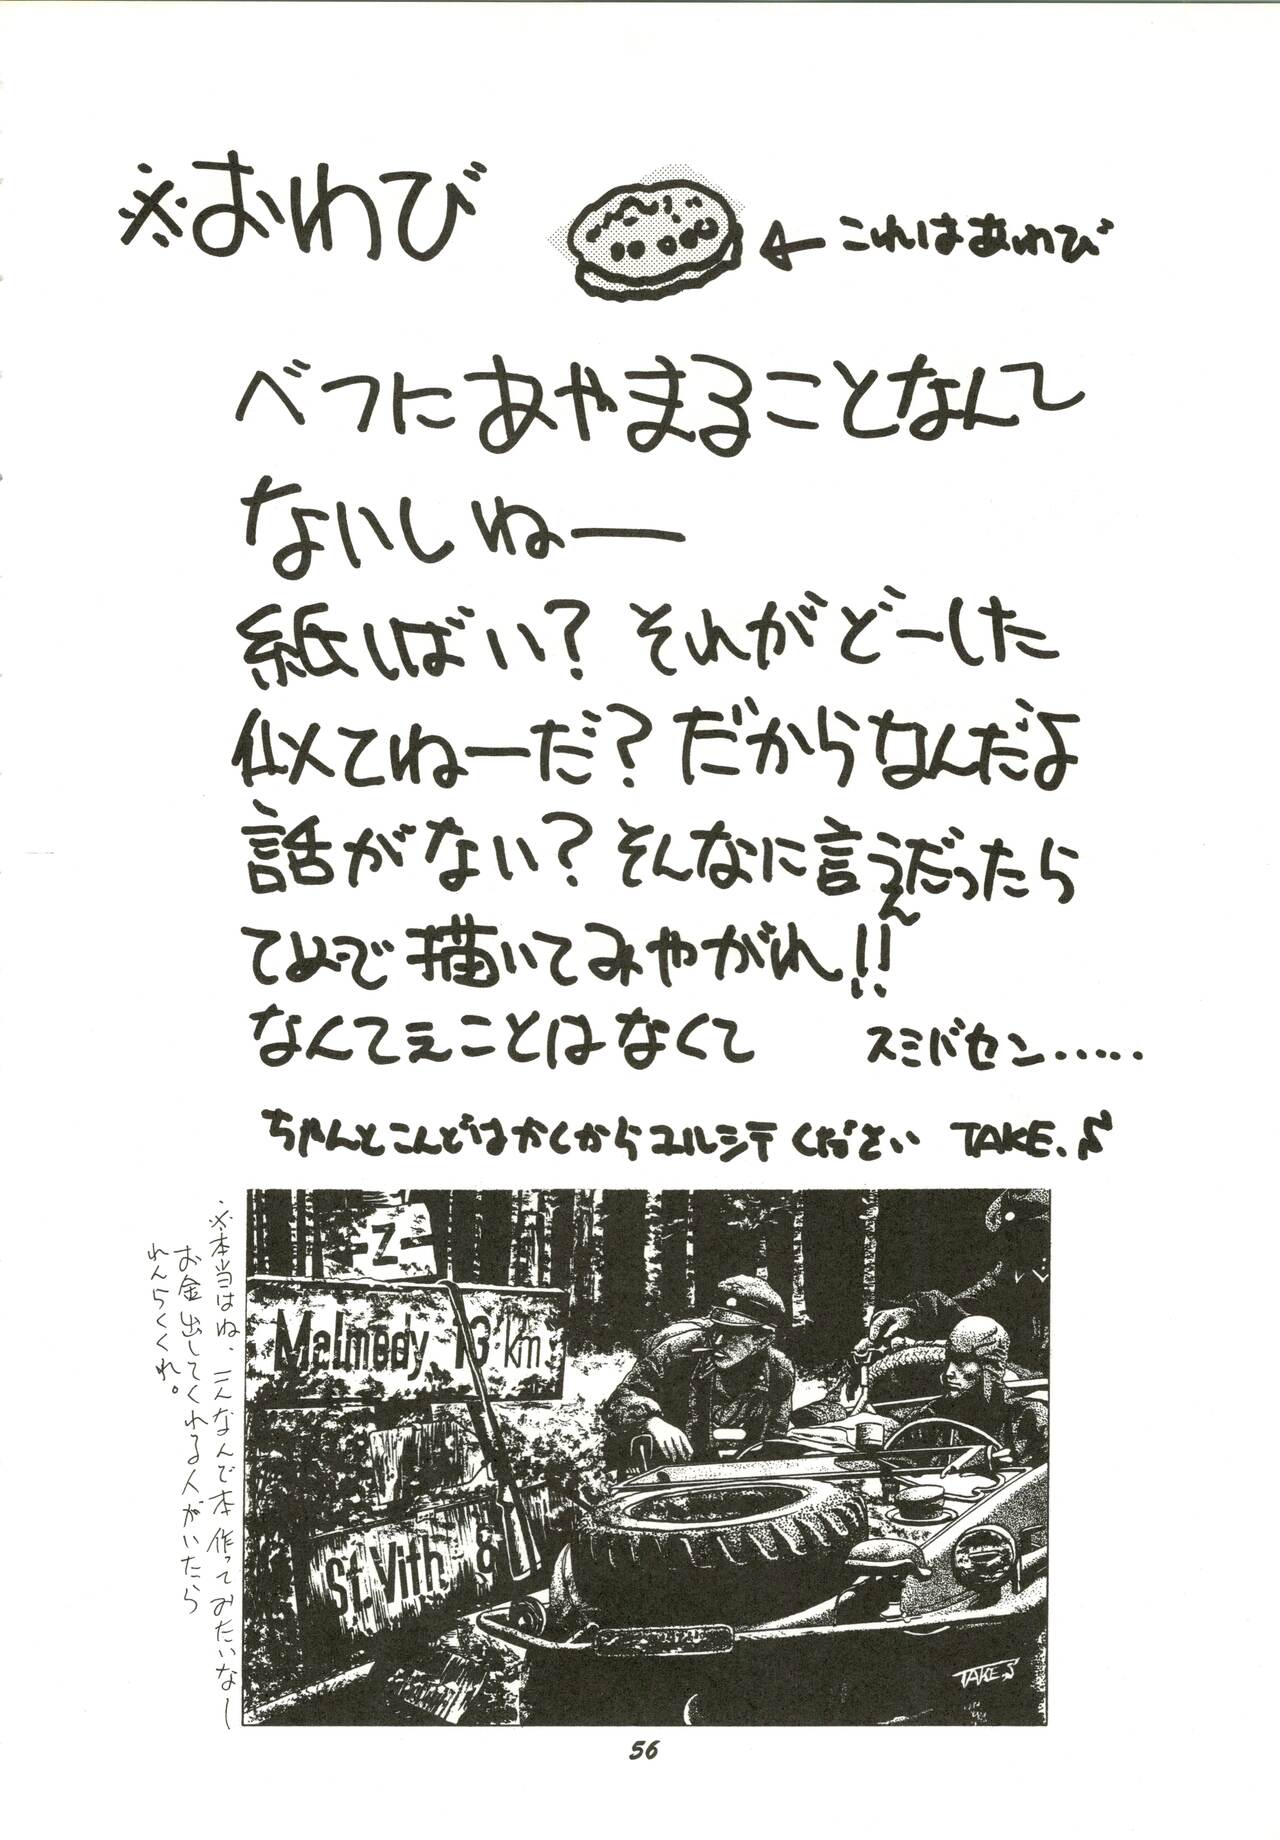 ※おわび
←これはあわび
べつにあやまることなんて
ないしねー
紙しばい？それがどーした
似てねーだ？だからなんだよ
話がない？そんなに言うんだったら
てめーで描いてみやがれ!!
なんてぇことはなくて スミバセン……
ちゃんとこんどはかくからユルシテください TAKE.S
※本当はね、こんなんで本作ってみたいなー
お金出してくれる人がいたら
れんらくくれ。
-Z-
Malmedy 13 km
St.Vith 8
TAKE.S
56